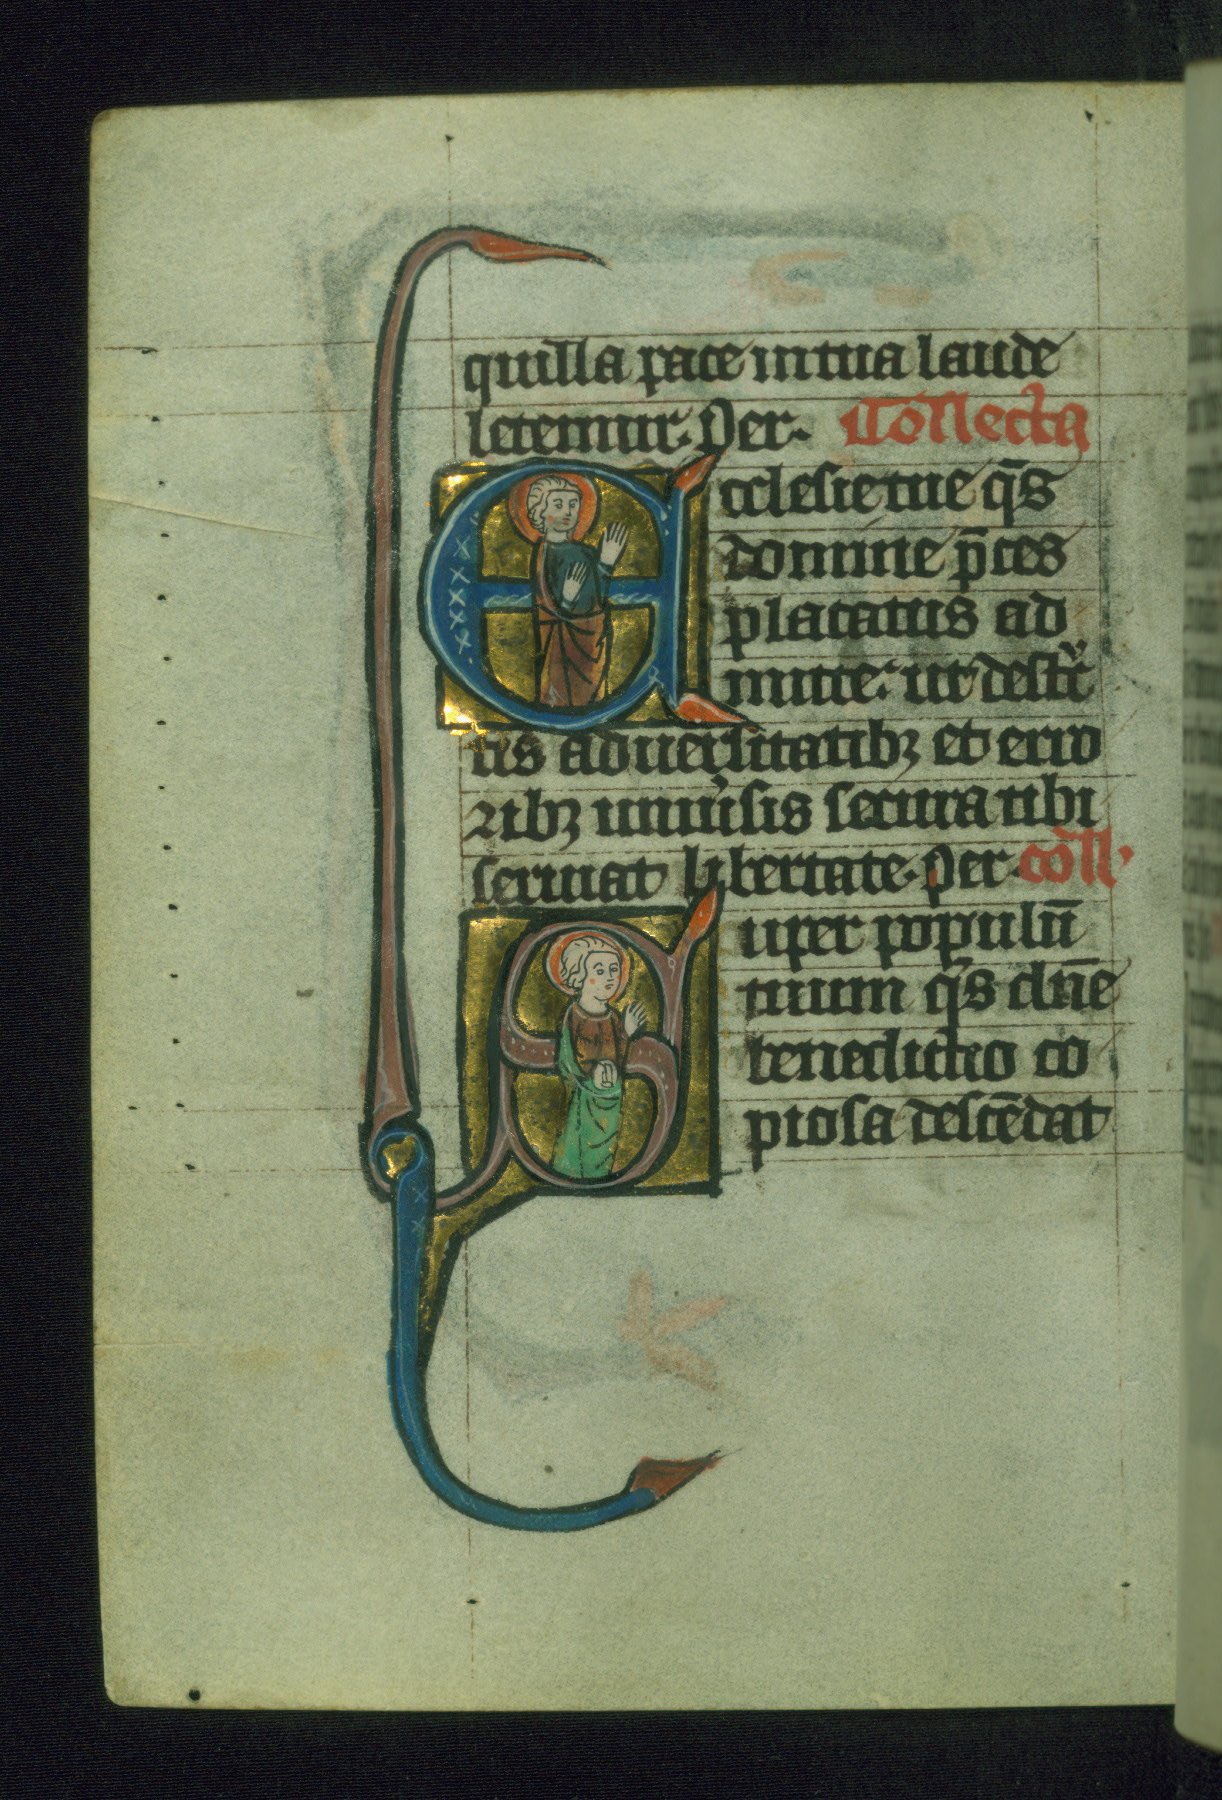 quilla pace in tua laude
letemur. Per. Collecta
Ecclesie tue q̄s
domine p̄ces
placatus ad
mitte: ut destͥ
tis aduersitatibꝫ et erro
ribꝫ uniu͛sis secura tibi
seruiat libertate. per. coll̄.
Super populū
tuum q̄s dn̄e
benedictio co
piosa descēdat